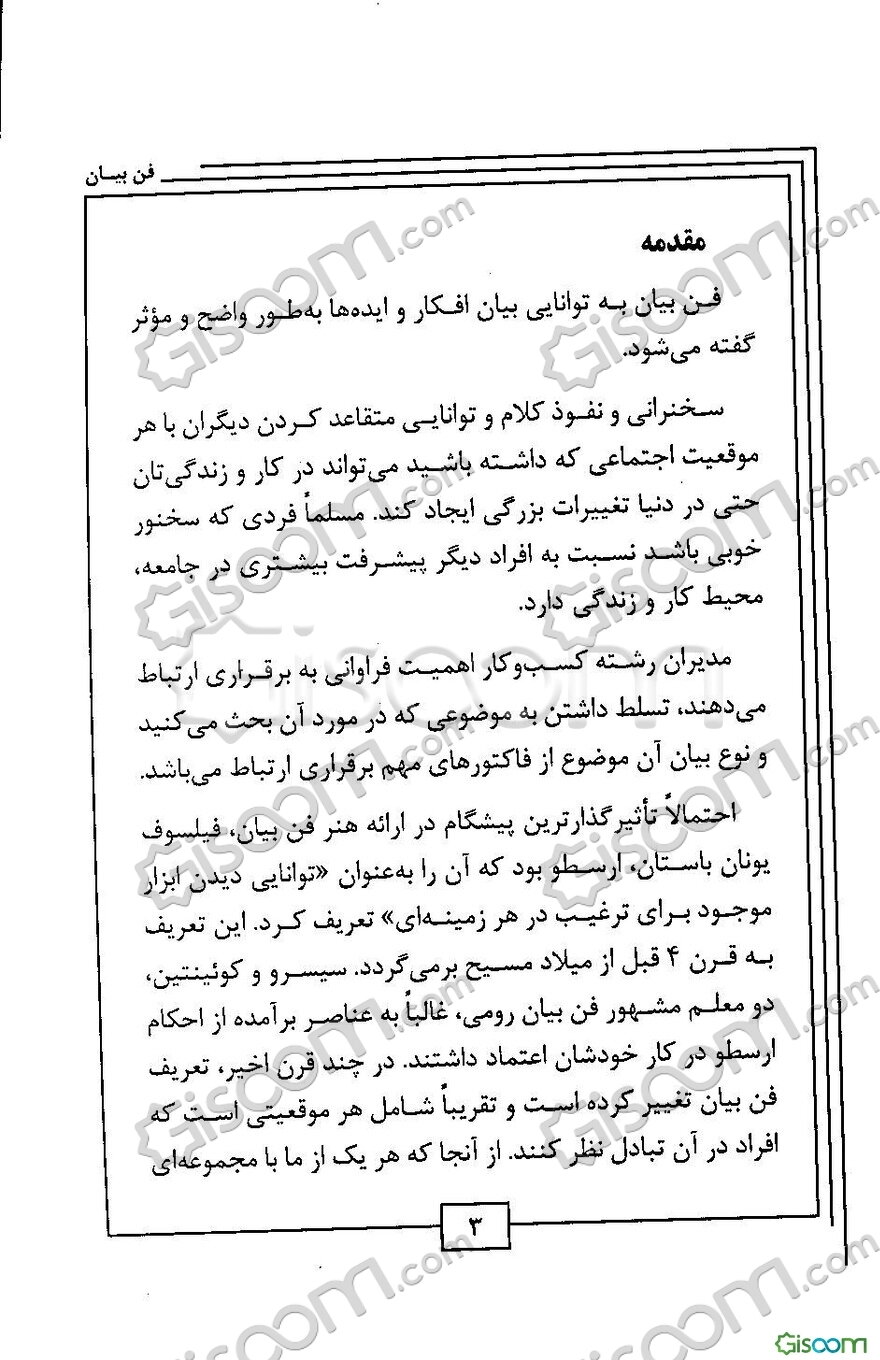 فن بیـان
مقدمه
فـن بیان بـه توانایی بیان افـکار و ایده‌ها به‌طـور واضح و مؤثر
گفته می‌شود.
سـخنرانی و نفـوذ کلام و توانایـی متقاعد کـردن دیگران با هر
موقعیت اجتماعی که داشـته باشـید می‌تواند در کار و زندگی‌تان
حتی در دنیا تغییرات بزرگی ایجاد کند. مسلماً فردی که سخنور
خوبی باشـد نسـبت به افراد دیگر پیشـرفت بیشـتری در جامعه،
محیط کار و زندگی دارد.
مدیران رشـته کسب‌وکار اهمیت فراوانی به برقـراری ارتباط
می‌دهند، تسلط داشتن به موضوعی که در مورد آن بحث می‌کنید
و نوع بیان آن موضوع از فاکتورهای مهم برقراری ارتباط می‌باشد.
احتمالاً تأثیرگذارترین پیشگام در ارائه هنر فن بیان، فیلسوف
یونان باسـتان، ارسـطو بود که آن را به‌عنوان «توانایی دیدن ابزار
موجـود بـرای ترغیـب در هر زمینـه‌ای» تعریف کـرد. این تعریف
بـه قـرن ۴ قبل از میلاد مسـیح برمی‌گردد. سیسـرو و کوئینتین،
دو معلـم مشـهور فن بیان رومی، غالبـاً به عناصـر برآمده از احکام
ارسـطو در کار خودشان اعتماد داشـتند. در چند قرن اخیر، تعریف
فن بیان تغییر کرده اسـت و تقریبـاً شـامل هر موقعیتی اسـت که
افراد در آن تبادل نظر کنند. از آنجا که هر یک از ما با مجموعه‌ای
۳
Gisoom